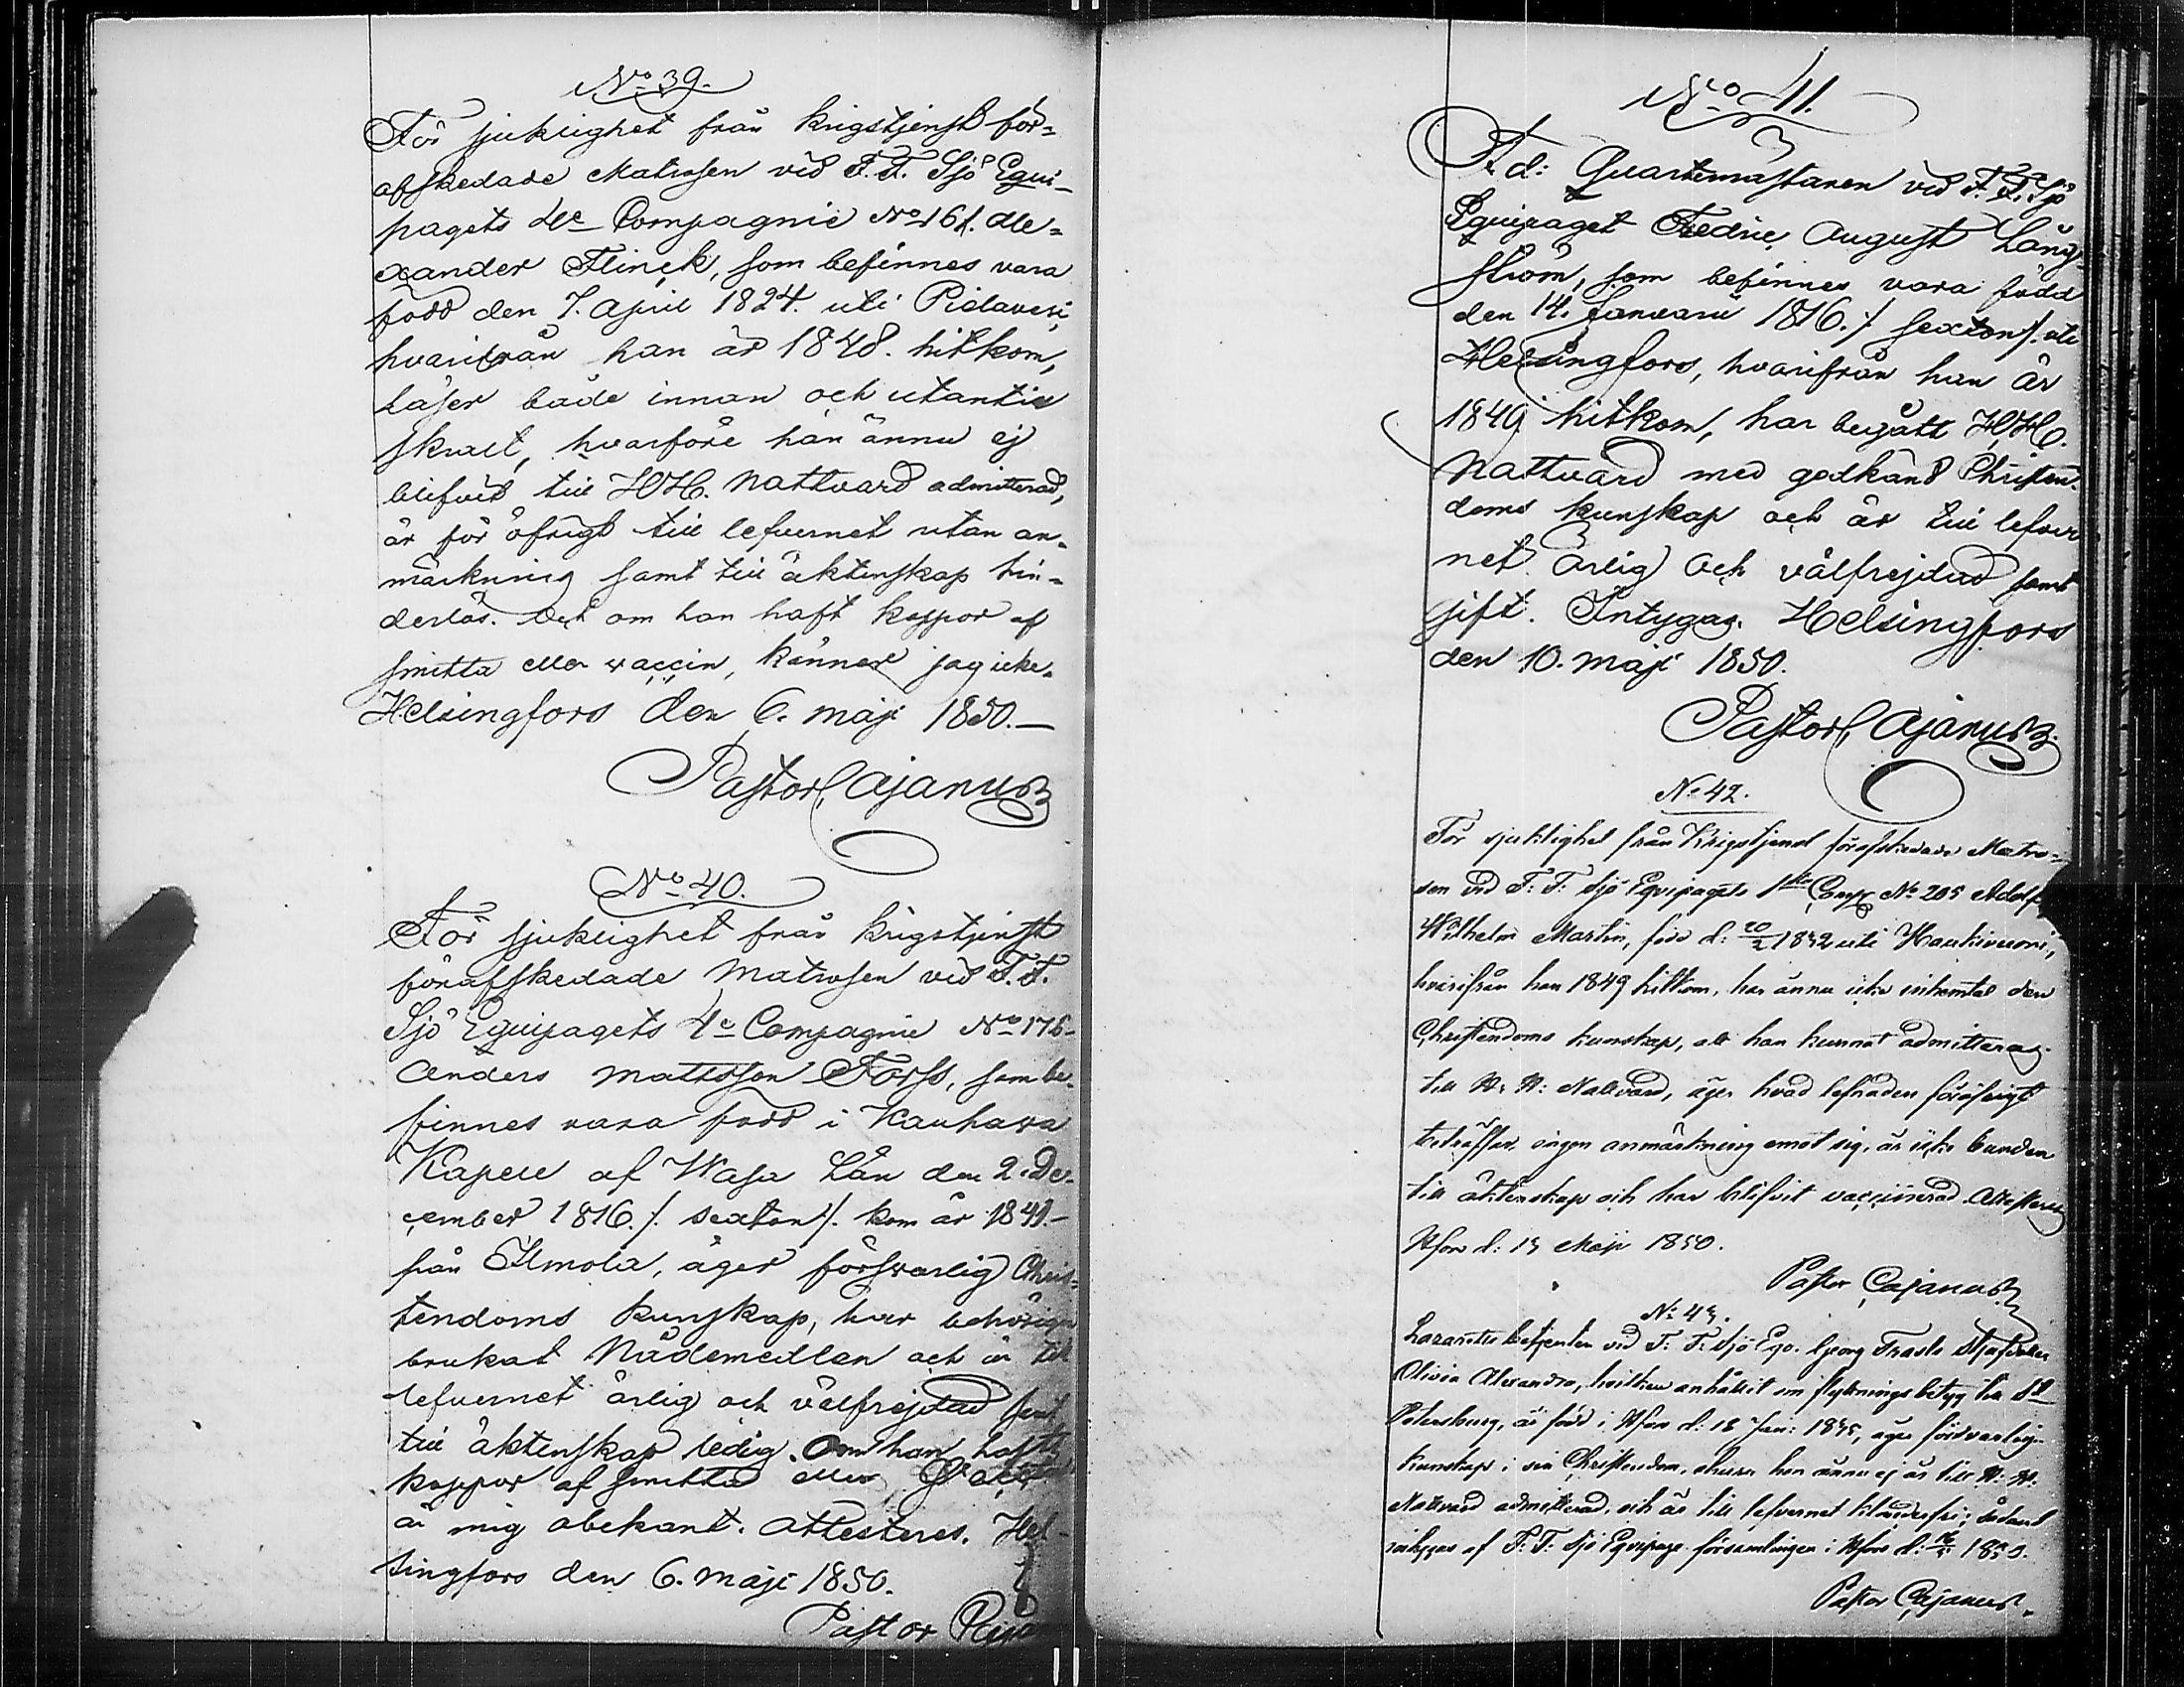 No 39.
För sjuklighet från krigstjenst för=
afskedade Matrosen vid F.F. Sjö Equi-
pagets 4e Compagnie No 161. Ale=
xander Flinck, som befinnes vara
född den 7. April 1824. uti Pielavesi,
hvarifrån han år 1848. hitkom,
Läser både innan och utantill
skralt, hvarföre han ännu ej
blifvit till H.H. Nattvard admitterad,
är för öfrigt till lefvernet utan an-
märkning samt till äktenskap hin-
derlös. Och om han haft koppor af
smitta eller vaccin, känner jag icke.
Helsingfors den 6. Maji 1850.—
Pastor Cajanus
No 40.
För sjuklighet från krigstjenst
förafskedade Matrosen vid F.F.
Sjö Equipagets 4e Compagnie No 176-
Anders Mattsson Forss, som be-
finnes vara född i Kauhava
Kapell af Wasa Län den 2. De-
cember 1816./. sexton/. kom år 1849.-
från Ilmola, äger försvarlig Chris-
tendoms kunskap, har behörigen
brukat Nådemedlen och är till
lefvernet ärlig och välfrejdad samt
till äktenskap ledig. Om han haft
koppor af smitta eller
är mig obekant. Attesteres. Hel-
singfors den 6. Maji 1850.
Pastor
No 41.
F.d: Quartermästaren vid F.F. Sjö
Equipaget Fredric August Lång-
ström, som befinnes vara född
den 14. Januarii 1816./. sexton/. uti
Helsingfors, hvarifrån han år
1849 hitkom, har begått H.H.
Nattvard med godkänd Christen-
doms kunskap och är till lefver
net ärlig och välfrejdad samt
gift. Intygas. Helsingfors
den 10. Maji 1850.
Pastor Cajanus.
No 42.
För sjuklighet från Krigstjenst förafskedade Matro-
sen vid F: F: Sjö Equipagets 1sta Comp No 205 Adolf
Wilhelm Martin, född d: 20/2 1832 uti Haukivuori,
hvarifrån han 1849 hitkom, har ännu icke inhemtat den
Christendoms kunskap, att han kunnat admitteras
till H: H: Nattvard, äger hvad lefnaden föröfrigt
beträffar ingen anmärkning emot sig, är icke bunden
till äktenskap och har blifvit vaccinerad. Attesteras
Hfors d: 13 Maji 1850.
Pastor Cajanus
No 43.
Lazaretts betjenten vid F: F: Sjö Eqv. Georg Trasts Styfdotter
Olivia Alexandra, hvilken anhållit om flyttningsbetyg till St
Petersburg, är född i Hfors d: 18 Jan: 1835, äger försvarlig
kunskap i sin Christendom, ehuru hon ännu ej är till H: H:
Nattvard admitterad, och är till lefvernet klanderfri; sådant
intygas af F: F: Sjö Equipage församlingen i Hfors d: 1850.
Pastor Cajanus.